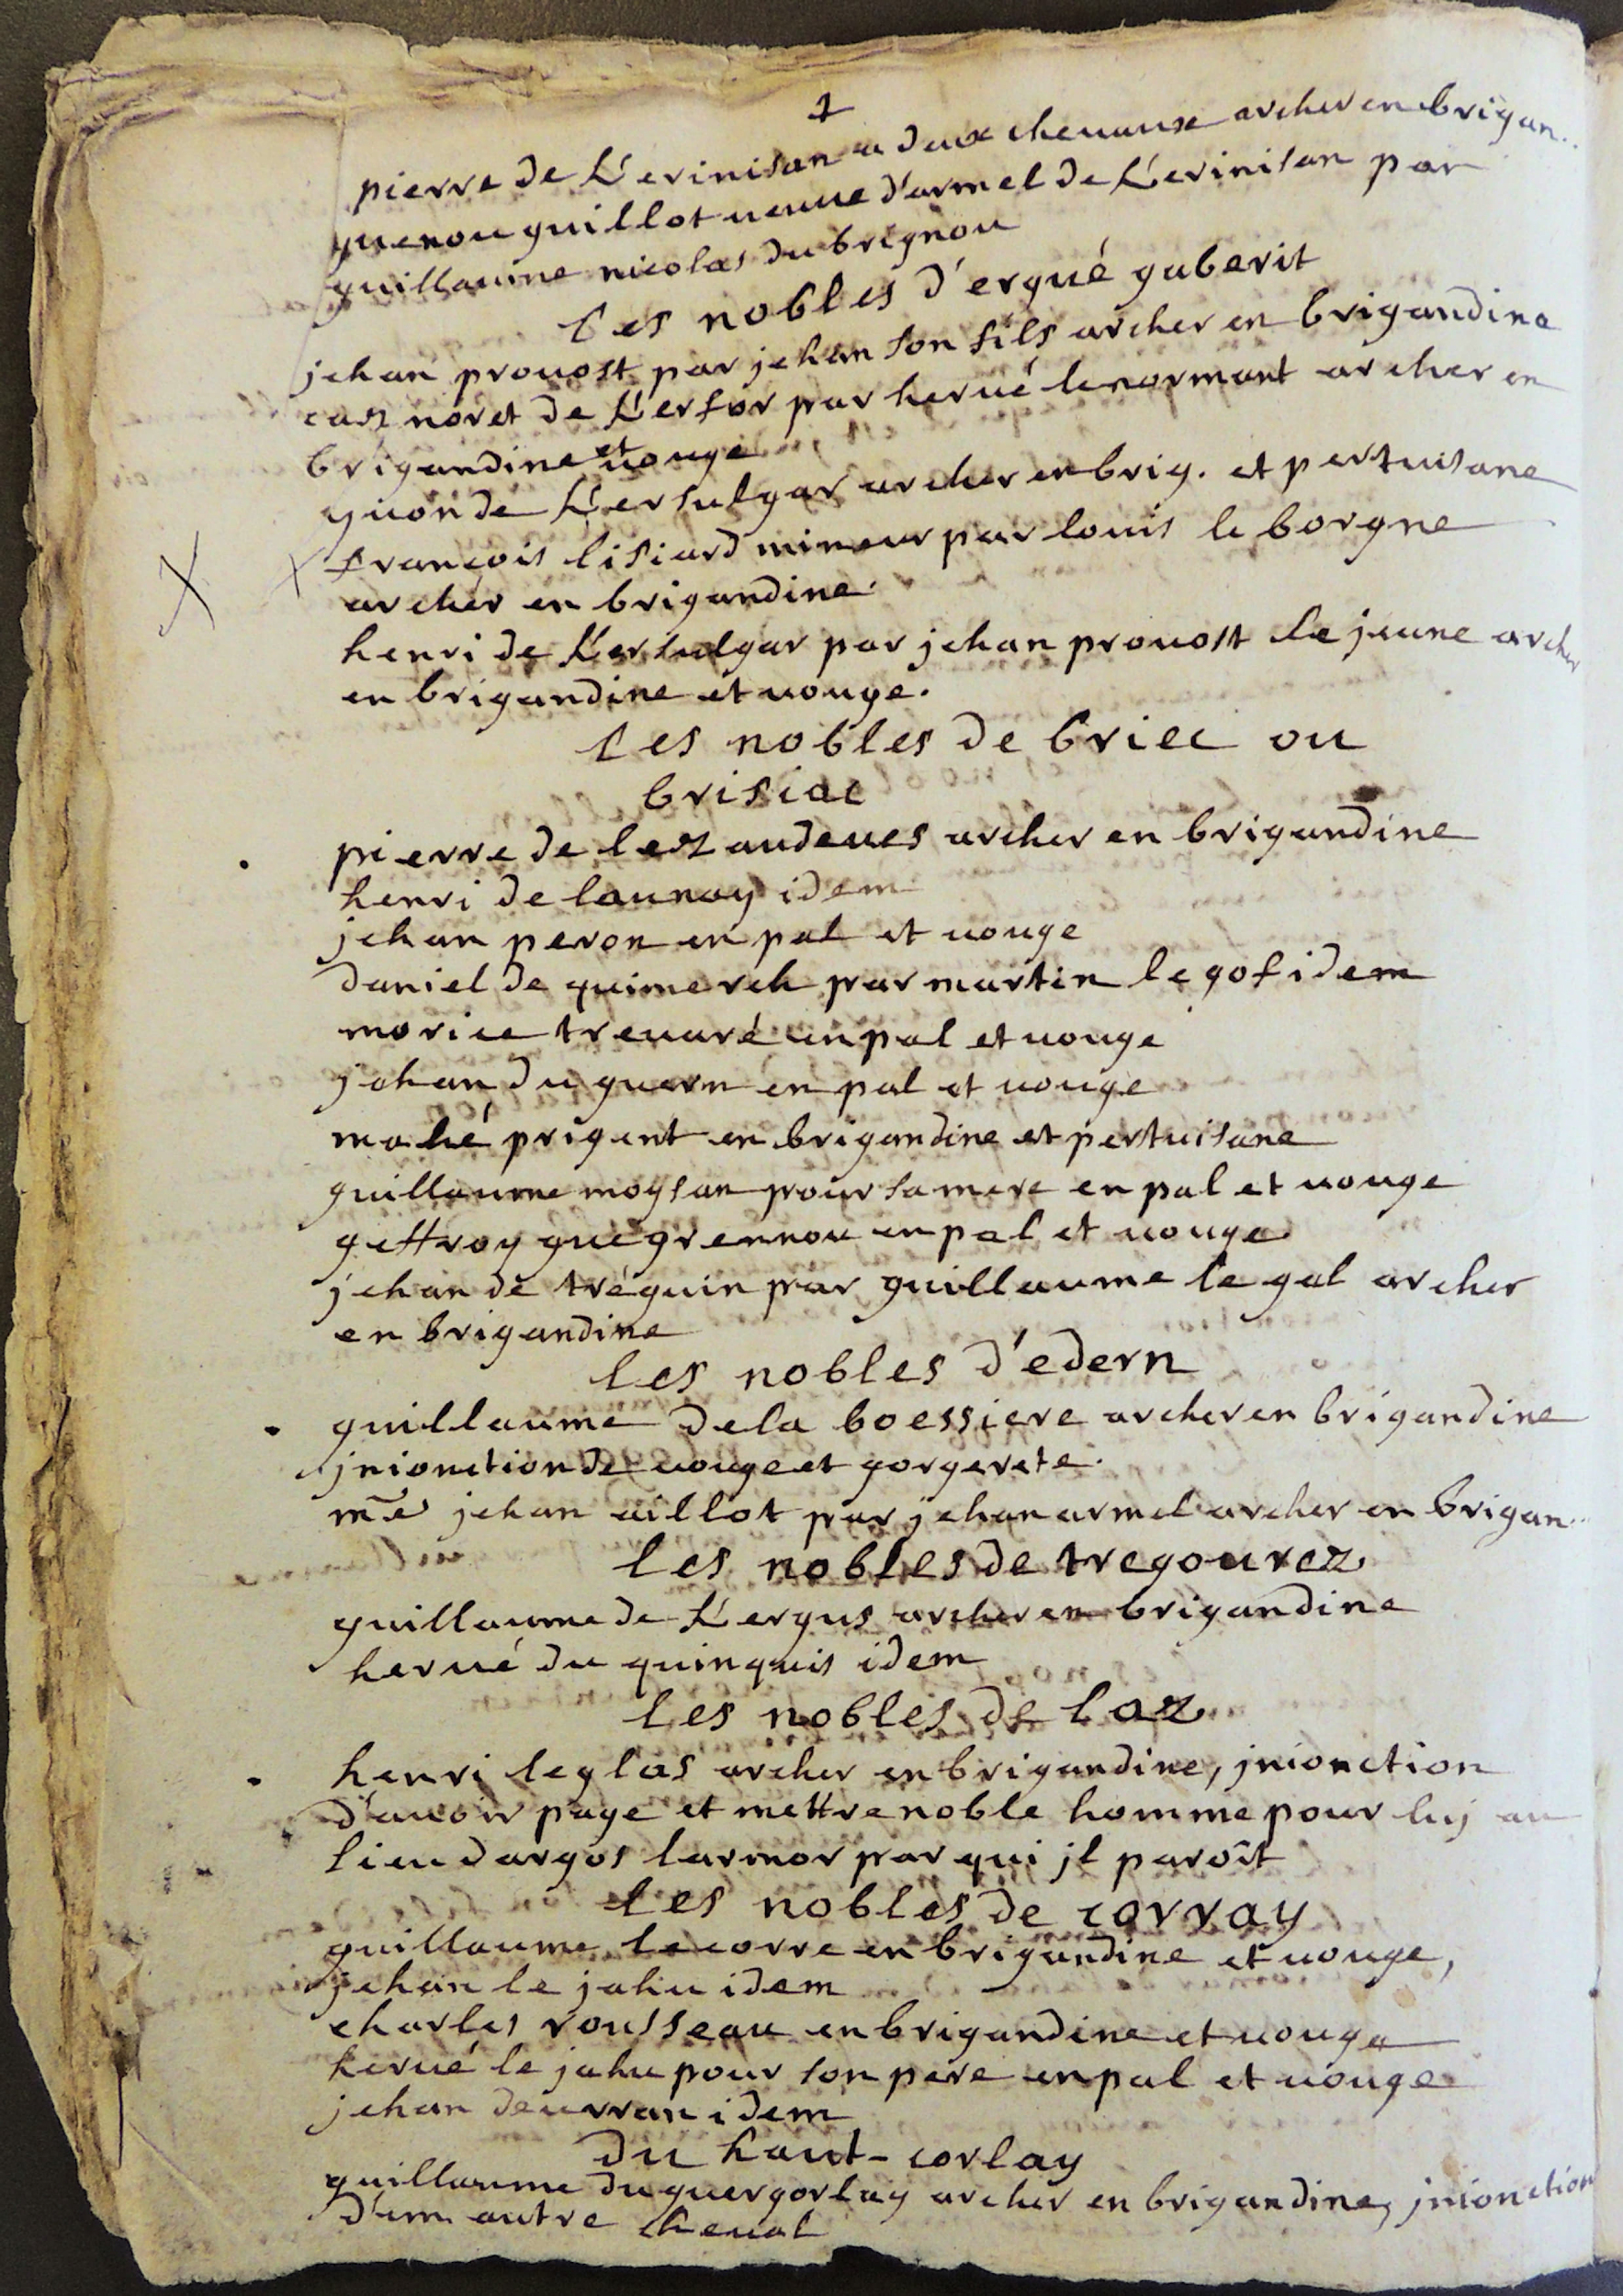 pierre de K/erinisan a deux cheuaux archer en brigan..
guenou guillot ueuue d'armel de K/erinisan par
guillaume nicolas du brignou
les nobles d'ergué gaberit
jehan prouost par jehan son fils archer en brigandine
caz noret de K/erfor par herué le normant archer en
brigandine et uouge
yuon de K/ersulgar archer en brig. et pertuisane
françois lisiard mineur par louis le borgne
archer en brigandine.
henri de K/ersulgar par jehan prouost le jeune archer
en brigandine et uouge.
les nobles de briec ou
brisiac
pierre de lezandeues archer en brigandine
henri de launay idem
jehan peron en pal et uouge
daniel de quimerch par martin le gof idem
morice treuaré en pal et uouge
jehan du guern en pal et uouge
mahé prigent en brigandine et pertuisane
guillaume moysan pour sa mere en pal et uouge
geffroy guegrennou en pal et uouge
jehan de tréguin par guillaume le gal archer
en brigandine
les nobles d'edern
guillaume de la boessiere archer en brigandine
jnionction de uouge et gorgerete.
me jehan aillot par jehan armel archer en brigan..
les nobles de tregourez
guillaume de K/ergus archer en brigandine
herué du quinquis idem
les nobles de laz
henri le glas archer en brigandine, jnionction
d'auoir page et mettre noble homme pour luj au
lieu dargos larmor par qui jl paroît
les nobles de corray
guillaume le corre en brigandine et uouge,
jehan le jahu idem
charles rousseau en brigandine et uouge
herué le jahu pour son pere en pal et uouge
jehan deurran idem
du haut-corlay
guillaume du guergorlay archer en brigandine, jnionction
d'un autre cheual